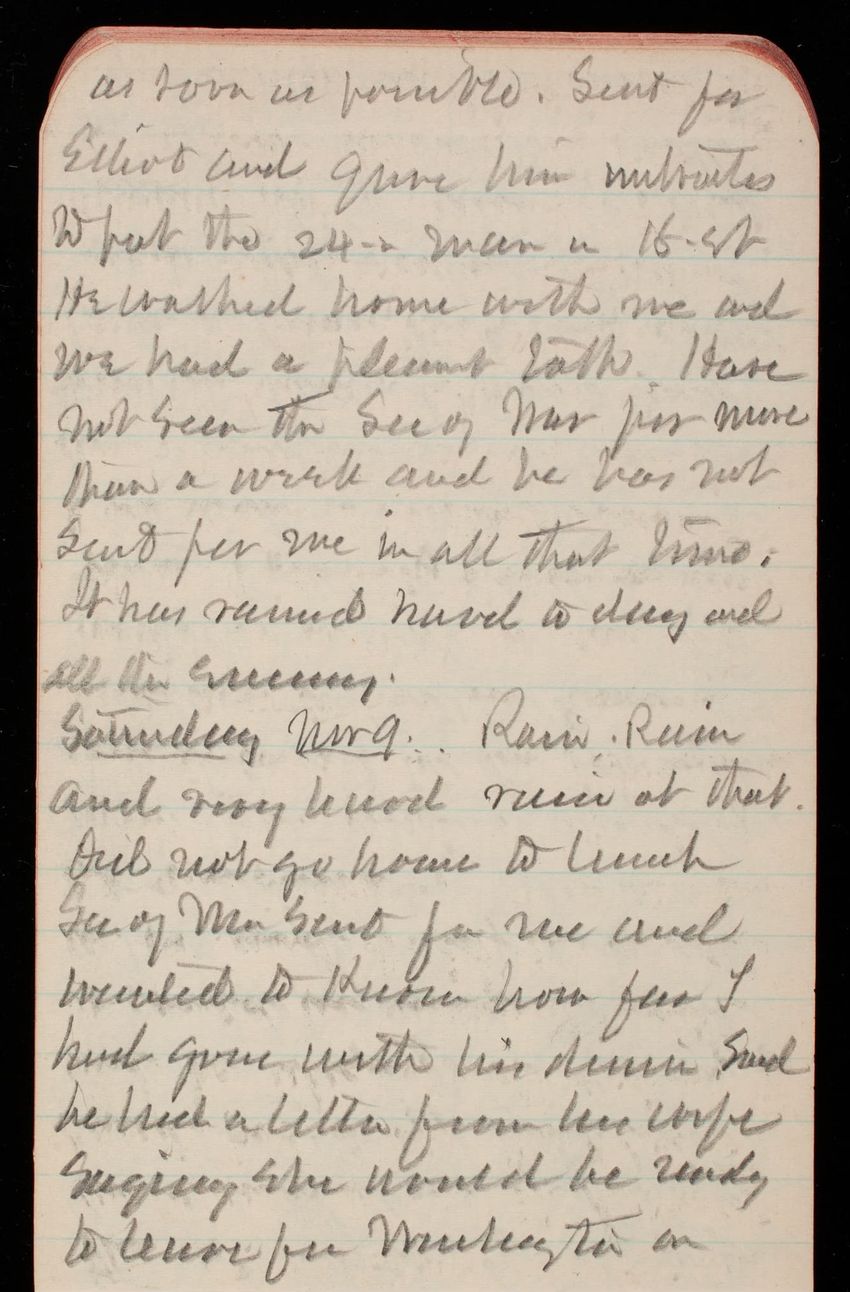 as soon as possible. Sent for
Elliot and gave him
to put the 24-in main in 15-st
He walked home with me and
we had a pleasant talk. Have
not seen the Sec of War for more
than a week and he has not
sent for me in all that time.
It has rained hard to day and
all the evening.
Saturday Nov 9. Rain, Rain
and very hard rain at that.
Did not go home to lunch
Sec of War sent for me and
wanted to know how far I
had gone with his Said
he had a letter from his wife
saying she would be ready
to leave for Washington on